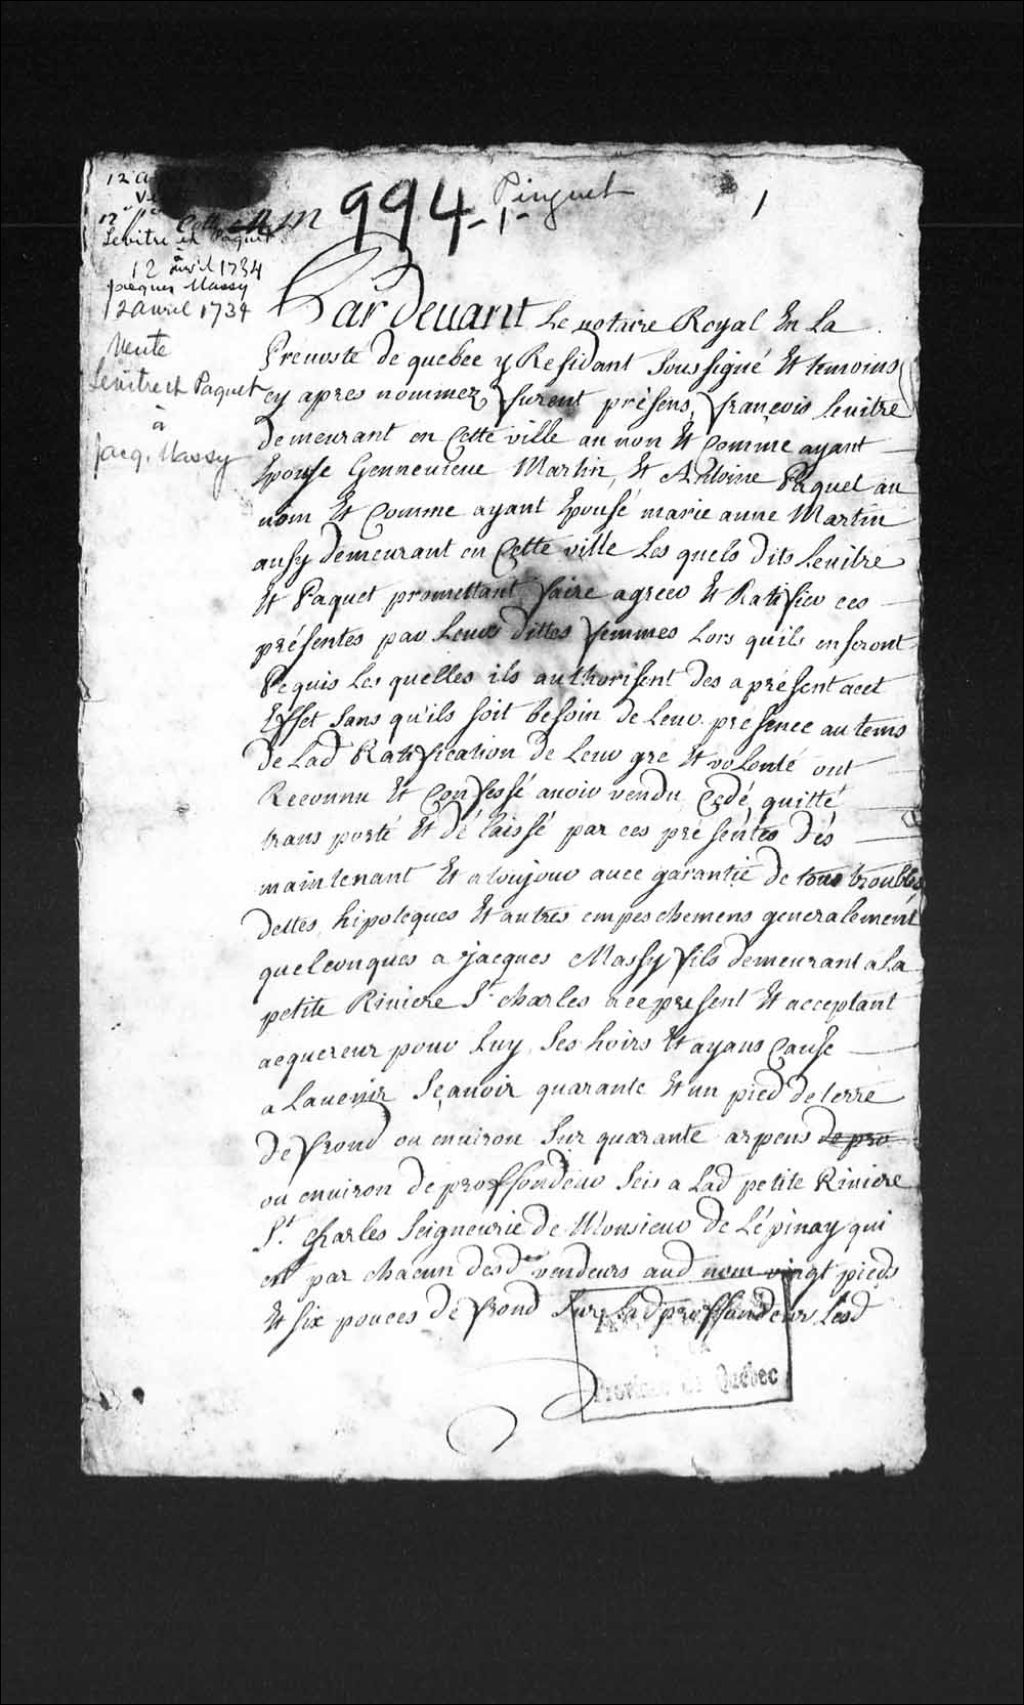 12 a
Ve
Levitre et Paquet
à
12 avril 1734
Jacques Massy
12 avril 1734
Vente
Levitre et Paquet
à
Jacq. Massy
994
-1-
Pinguet
1
Par Devant Le notaire Royal En La
Prevosté de quebec y Residant Soussigné Et temoins
cy apres nommez, furent présens, françois levitre
demeurant en Cette ville au nom Et Comme ayant
Epousé Gennevieve Martin, Et Antoine Paquet au
nom Et Comme ayant Epousé marie anne Martin
ausy demeurant en Cette ville Les quels dits levitre
Et Paquet promettant faire agreer Et Ratifier ces
présentes par Leurs dittes femmes Lors quils en seront
Requis Les quelles ils authorisent des a présent acet
Effet Sans qu'ils soit besoin de leur presence au tems
de Lad Ratification de leur gré Et volonté ont
Reconnu Et Confessé avoir vendu, Cedé, quitté
trans porté Et dé laissé par ces pré sentes dés
maintenant Et atoujour avec garantie de tous troubles
dettes, hipoteques Et autres empeschemens generalement
quelconques a jacques Massy fils demeurant ala
petite Riviere St charles a ce present Et acceptant
acquereur pour luy, ses hoirs Et ayans Cause
a Lavenir Sçavoir quarante Et un pied de terre
de frond ou environ sur quarante arpens de pro
ou environ de proffondeur Seis a Lad petite Riviere
St. Charles Seigneurie de Monsieur de Lépinay qui
est par chacun desd vendeurs aud nom vingt pieds
Et six pouces de frond Sur Lad proffondeur lesd
Province de Québec